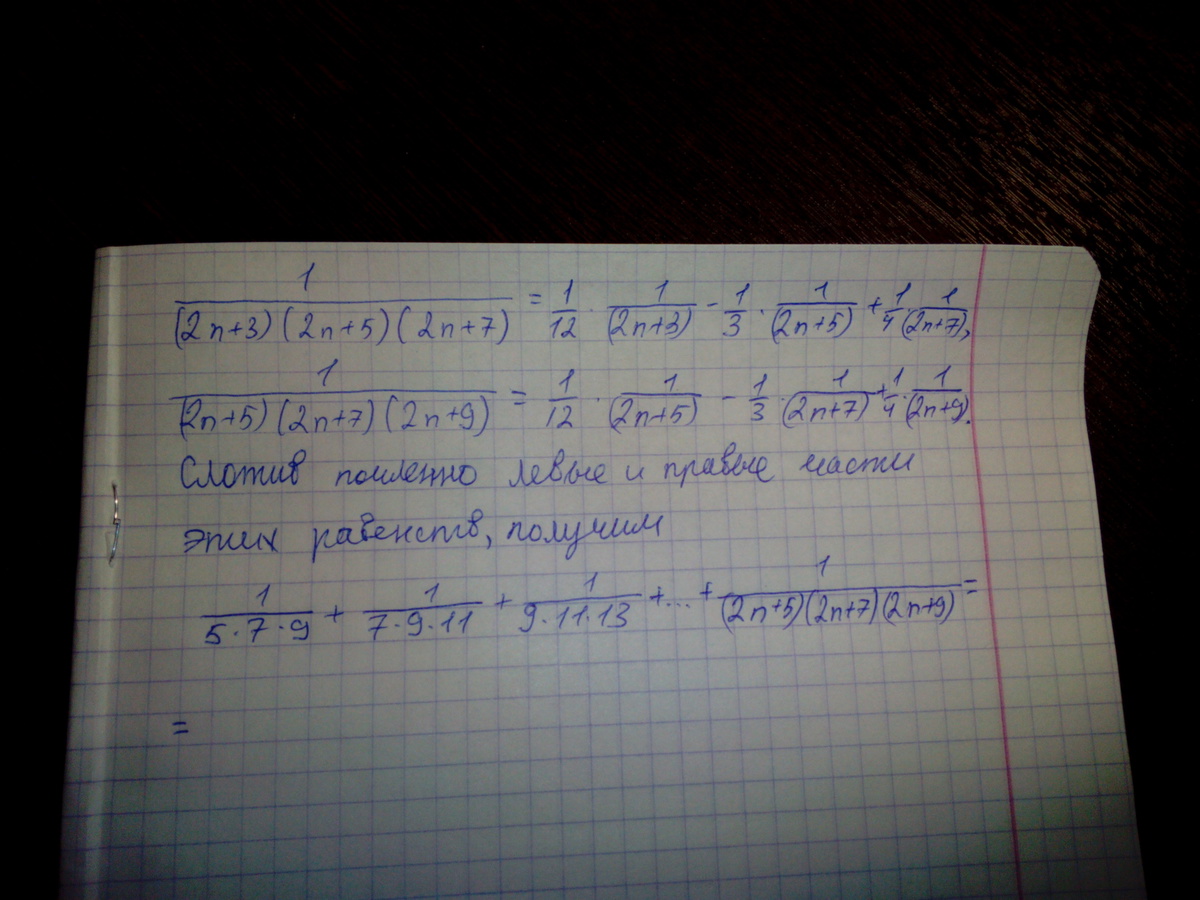 1/((2n+3)(2n+5)(2n+7)) = 1/12 · 1/(2n+3) - 1/3 · 1/(2n+5) + 1/4 · 1/(2n+7),
1/((2n+5)(2n+7)(2n+9)) = 1/12 · 1/(2n+5) - 1/3 · 1/(2n+7) + 1/4 · 1/(2n+9).
Сложив почленно левые и правые части
этих равенств, получим
1/(5·7·9) + 1/(7·9·11) + 1/(9·11·13) + ... + 1/((2n+5)(2n+7)(2n+9)) =
=